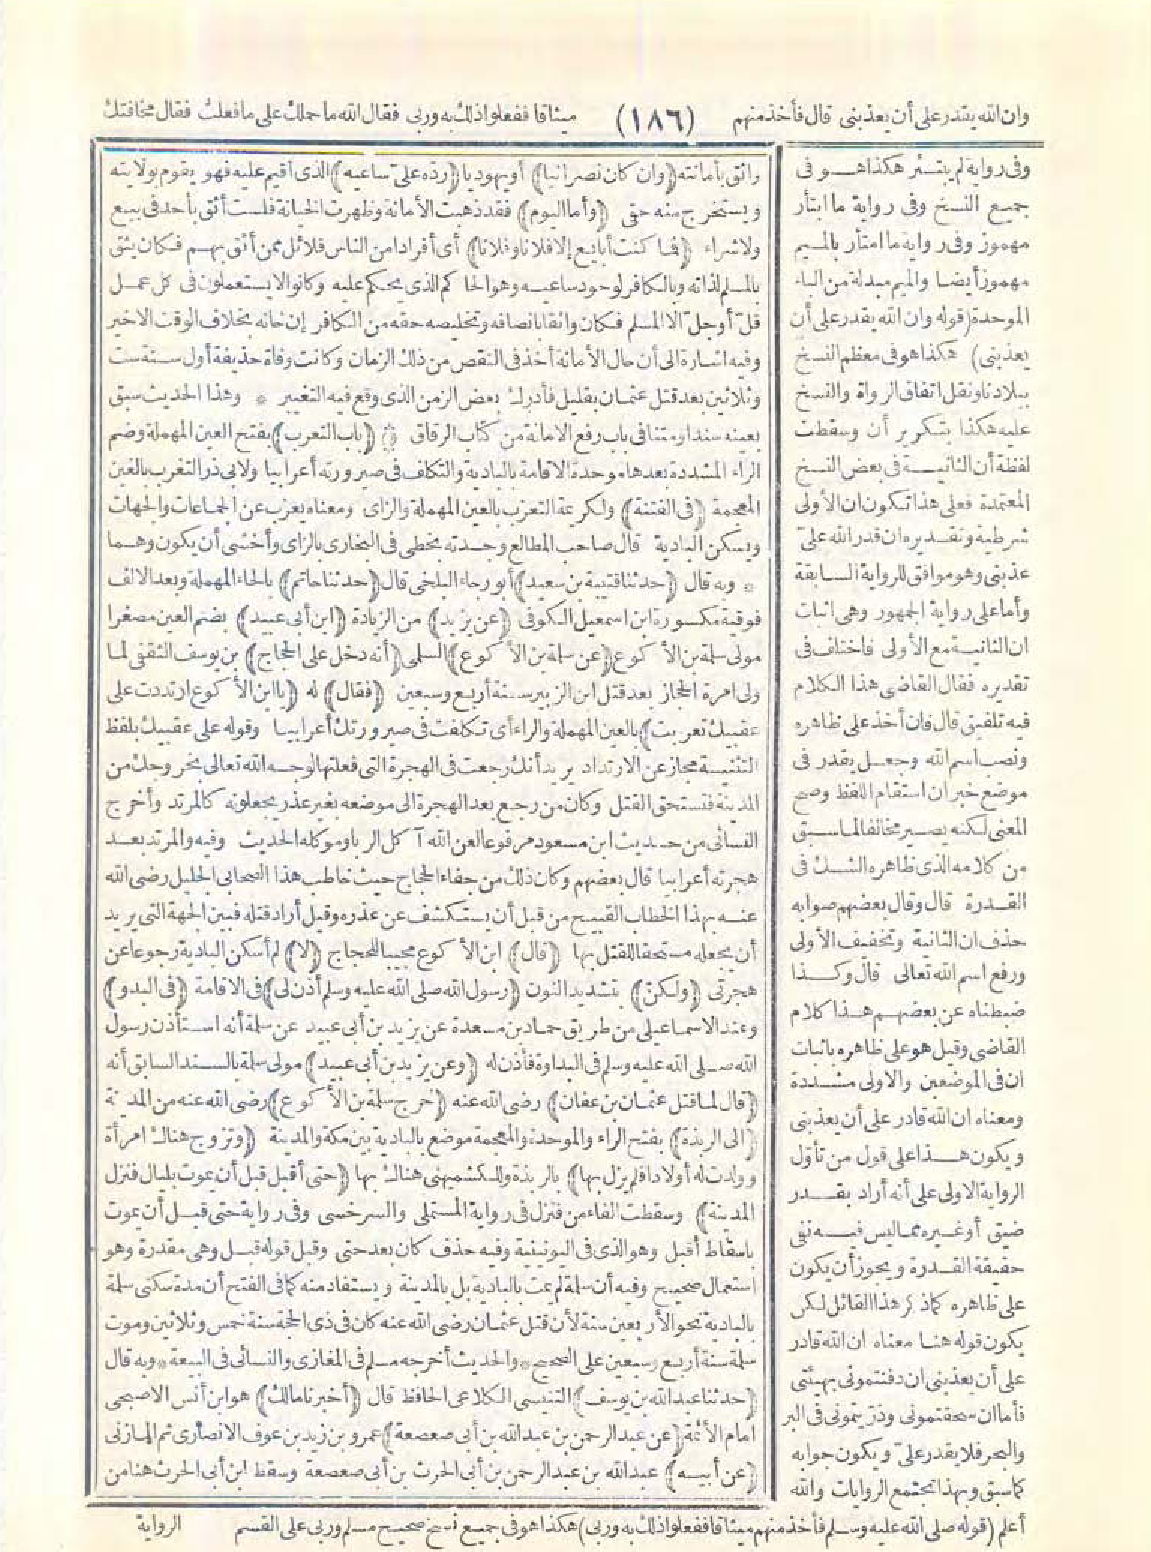 وان الله يقدر على أن يعذبنى قال فأخذ منهم (١٨٦) ميثاقا ففعلوا ذلك به وربى فقال الله ما حملك على ما فعلت فقال مخافتك
واثق بأمانته (وان كان نصرانيا) أو يهوديا (رده على ساعيه) الذى أقيم عليه فهو يقوم بولايته
ويستخرج منه حقى (وأما اليوم) فقد ذهبت الأمانة وظهرت الخيانة فلست أثق بأحد فى بيع
ولا شراء (فما كنت أبايع إلا فلانا وفلانا) أى أفرادا من الناس قلائل ممن أثق بهم فكان يثق
بالمسلم لذاته وبالكافر لوجود ساعيه وهو الحاكم الذى يحكم عليه وكانوا لا يستعملون فى كل عمل
قل أو جل الا المسلم فكان واثقا بانصافه وتخليصه حقه من الكافر إن خانه بخلاف الوقت الاخير
وفيه اشارة الى أن حال الأمانة أخذ فى النقص من ذلك الزمان وكانت وفاة حذيفة أول سنة ست
وثلاثين بعد قتل عثمان بقليل فأدرك بعض الزمن الذى وقع فيه التغيير * وهذا الحديث سبق
بعينه سندا ومتنا فى باب رفع الامانة من كتاب الرقاق (باب التعرب) بفتح العين المهملة وضم
الراء المشددة بعدها موحدة الاقامة بالبادية والتكلف فى صيرورته أعرابيا ولابى ذر التغرب بالغين
المعجمة (فى الفتنة) ولكريمة التعزب بالعين المهملة والزاى ومعناه يعزب عن الجماعات والجهات
ويسكن البادية قال صاحب المطالع وجدته بخطى فى البخارى بالزاى وأخشى أن يكون وهما
* وبه قال (حدثنا قتيبة بن سعيد) أبو رجاء البلخى قال (حدثنا حاتم) بالحاء المهملة وبعد الالف
فوقية مكسورة ابن اسمعيل الكوفى (عن يزيد) من الزيادة (ابن أبى عبيد) بضم العين مصغرا
مولى سلمة بن الأكوع (عن سلمة بن الأكوع) السلمى (أنه دخل على الحجاج) بن يوسف الثقفى لما
ولى امرة الحجاز بعد قتل ابن الزبير سنة أربع وسبعين (فقال) له (يا ابن الأكوع ارتددت على
عقبيك تعربت) بالعين المهملة والراء أى تكلفت فى صيرورتك أعرابيا وقوله على عقبيك بلفظ
التثنية مجاز عن الارتداد يريد أنك رجعت فى الهجرة التى فعلتها لوجه الله تعالى بخروجك من
المدينة فتستحق القتل وكان من رجع بعد الهجرة الى موضعه بغير عذر يجعلونه كالمرتد وأخرج
النسائى من حديث ابن مسعود مرفوعا لعن الله آكل الربا وموكله الحديث وفيه والمرتد بعد
هجرته أعرابيا قال بعضهم وكان ذلك من جفاء الحجاج حيث خاطب هذا الصحابى الجليل رضى الله
عنه بهذا الخطاب القبيح من قبل أن يستكشف عن عذره وقيل أراد قتله فبين الجهة التى يريد
أن يجعله مستحقا للقتل بها (قال) ابن الأكوع مجيبا للحجاج (لا) لم أسكن البادية رجوعا عن
هجرتى (ولكن) بتشديد النون (رسول الله صلى الله عليه وسلم أذن لى) فى الاقامة (فى البدو)
وعند الاسماعيلى من طريق حماد بن مسعدة عن يزيد بن أبى عبيد عن سلمة أنه استأذن رسول
الله صلى الله عليه وسلم فى البداوة فأذن له (وعن يزيد بن أبى عبيد) مولى سلمة بالسند السابق أنه
(قال لما قتل عثمان بن عفان) رضى الله عنه (خرج سلمة بن الأكوع) رضى الله عنه من المدينة
(الى الربذة) بفتح الراء والموحدة والمعجمة موضع بالبادية بين مكة والمدينة (وتزوج هناك امرأة
وولدت له أولادا فلم يزل بها) بالربذة وللكشميهنى هناك بها (حتى أقبل قبل أن يموت بليال فنزل
المدينة) وسقطت الفاء من فنزل فى رواية المستملى والسرخسى وفى رواية حتى قبل أن يموت
باسقاط أقبل وهو الذى فى اليونينية وفيه حذف كان بعد حتى وقبل قوله قبل وهى مقدرة وهو
استعمال صحيح وفيه أن سلمة لم يمت بالبادية بل بالمدينة ويستفاد منه كما فى الفتح أن مدة سكنى سلمة
بالبادية نحو الأربعين سنة لأن قتل عثمان رضى الله عنه كان فى ذى الحجة سنة خمس وثلاثين وموت
سلمة سنة أربع وسبعين على الصحيح * والحديث أخرجه مسلم فى المغازى والنسائى فى البيعة * وبه قال
(حدثنا عبد الله بن يوسف) التنيسى الكلاعى الحافظ قال (أخبرنا مالك) هو ابن أنس الاصبحى
امام الأئمة (عن عبد الرحمن بن عبد الله بن أبى صعصعة) عمرو بن زيد بن عوف الانصارى ثم المازنى
(عن أبيه) عبد الله بن عبد الرحمن بن أبى الحرث بن أبى صعصعة وسقط ابن أبى الحرث هنا من
وفى رواية لم يبتئر هكذا هو فى
جميع النسخ وفى رواية ما ابتأر
مهموز وفى رواية ما امتأر بالميم
مهموز أيضا والميم مبدلة من الباء
الموحدة (قوله وان الله يقدر على أن
يعذبنى) هكذا هو فى معظم النسخ
ببلادنا ونقل اتفاق الرواة والنسخ
عليه هكذا بتكرير أن وسقطت
لفظة أن الثانية فى بعض النسخ
المعتمدة فعلى هذا تكون ان الأولى
شرطية وتقديره ان قدر الله على
عذبنى وهو موافق للرواية السابقة
وأما على رواية الجمهور وهى اثبات
ان الثانية مع الأولى فاختلف فى
تقديره فقال القاضى هذا الكلام
فيه تلفيق قال فان أخذ على ظاهره
ونصب اسم الله وجعل يقدر فى
موضع خبر ان استقام اللفظ وصح
المعنى لكنه يصير مخالفا لما سبق
من كلامه الذى ظاهره الشك فى
القدرة قال وقال بعضهم صوابه
حذف ان الثانية وتخفيف الأولى
ورفع اسم الله تعالى قال وكذا
ضبطناه عن بعضهم هذا كلام
القاضى وقيل هو على ظاهره باثبات
ان فى الموضعين والاولى مشددة
ومعناه ان الله قادر على أن يعذبنى
ويكون هذا على قول من تأول
الرواية الاولى على أنه أراد بقدر
ضيق أو غيره مما ليس فيه نفى
حقيقة القدرة ويجوز أن يكون
على ظاهره كما ذكر هذا القائل لكن
يكون قوله هنا معناه ان الله قادر
على أن يعذبنى ان دفنتمونى بهيئتى
فأما ان سحقتمونى وذريتمونى فى البر
والبحر فلا يقدر على ويكون جوابه
كما سبق وبهذا تجتمع الروايات والله
أعلم (قوله صلى الله عليه وسلم فأخذ منهم ميثاقا ففعلوا ذلك به وربى) هكذا هو فى جميع نسخ صحيح مسلم وربى على القسم الرواية